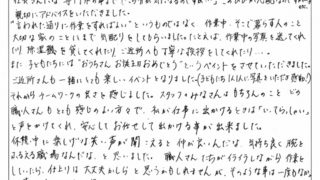 親切にアドバイスをいただきました。
"言われた通りに作業をすればいい"というものではなく、作業中、そこで暮らす人のこと
大切な家のことにまで気配りをしてもらいました。たとえば、作業の写真を送ってくれ
たり 除湿機を貸してくれたり ご近所へも丁寧な挨拶をしてくれたり...
また 子どもたちには"おうちさん お誕生日おめでとう"というイベントをさせていただきました。
ご近所さんも一緒に とても楽しいイベントとなりました
それからチームワークの良さを感じました。スタッフのみなさんはもちろんのこと どの
職人さんもとても感じのよい方々で、私が仕事に出かけるときは「いってらっしゃい」
と声をかけてくれ、安心しておまかせして出かける事が出来ました。
休憩中も楽しげな笑い声が聞こえると 仲が良いんだな、気持ち良く腕を
ふるえる職場なんだな、と思いました。職人さんたちがイライラしながら作業を
していたら、仕上りは大丈夫かしらと思うかもしれませんが、そのような事は一度もなく